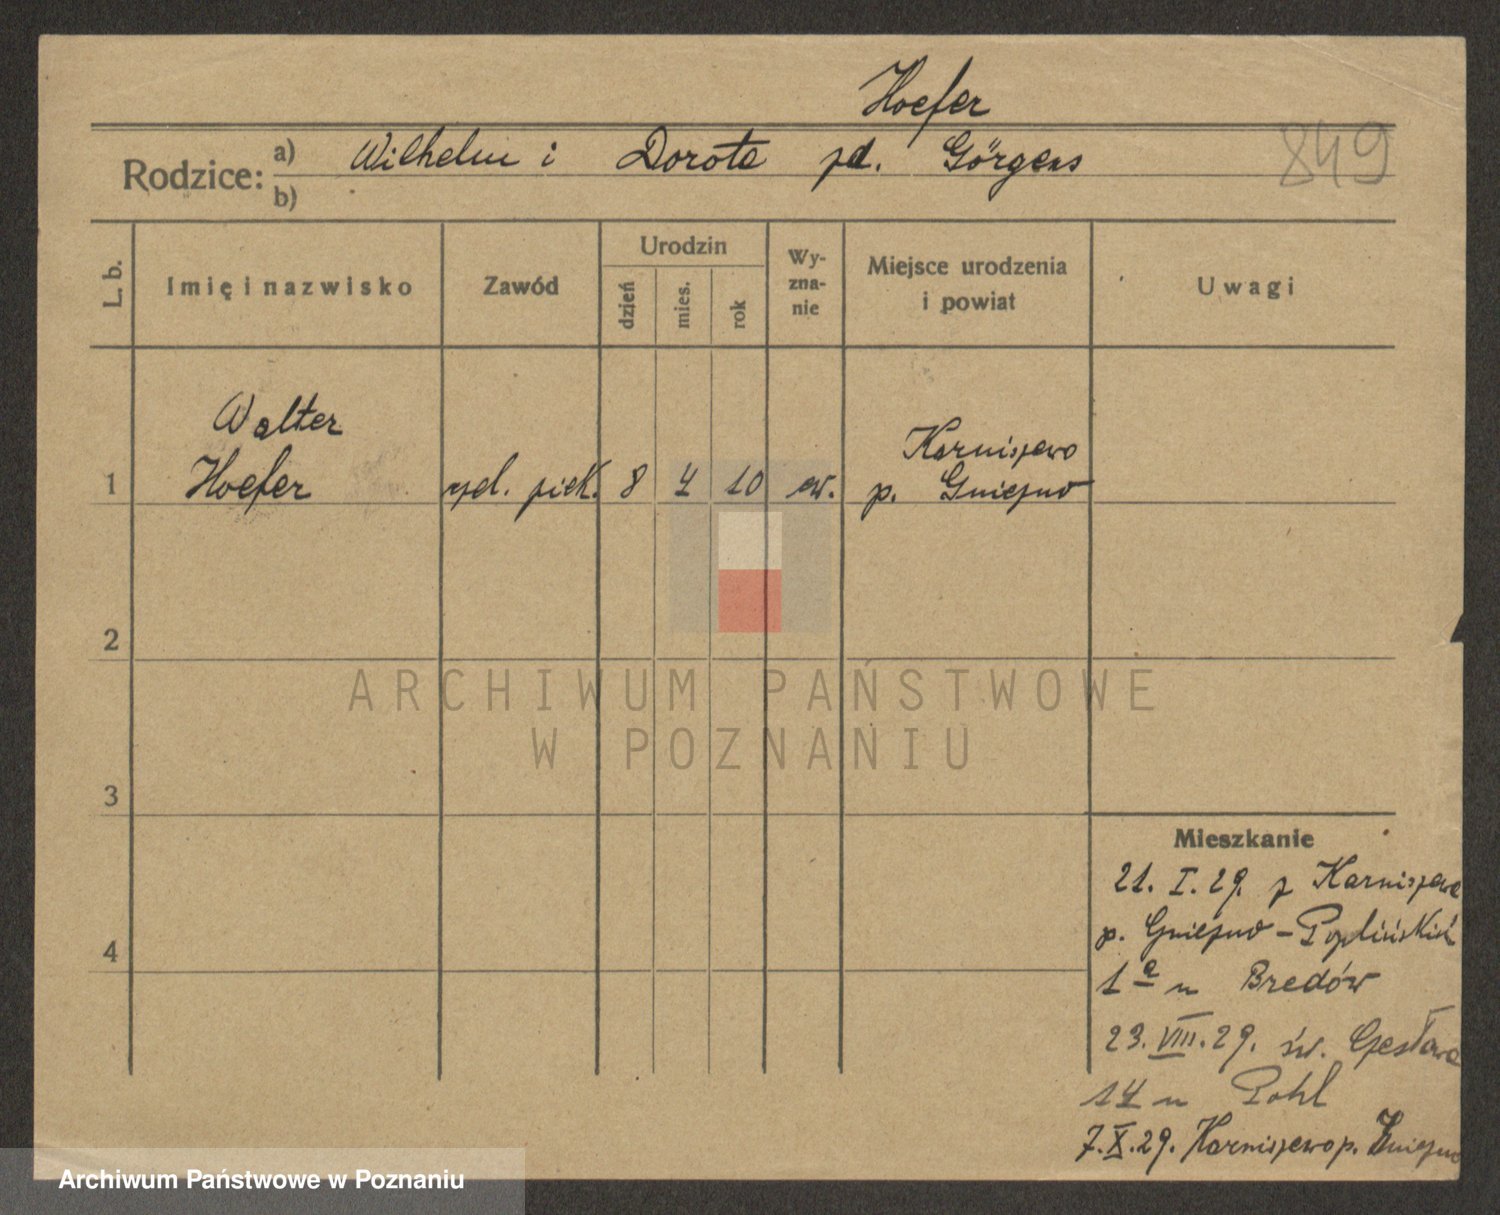 Hoefer
849
Rodzice: a) Wilhelm i Dorota zd. Görgens
b)
L. b.
Imię i nazwisko
Zawód
Urodzin
dzień
mies.
rok
Wy-
zna-
nie
Miejsce urodzenia
i powiat
Uwagi
Walter
Karniszewo
1 Hoefer czel. piek. 8 4 10 ew. p. Gniezno
2
ARCHIWUM PAŃSTWOWE
W POZNANIU
3
Mieszkanie
21. I. 29. z Karniszewa
p. Gniezno –
4
1a u Bredów
23. VIII. 29. św. Czesława
14 u Pohl
7. X. 29. Karniszewo p. Gniezno
Archiwum Państwowe w Poznaniu